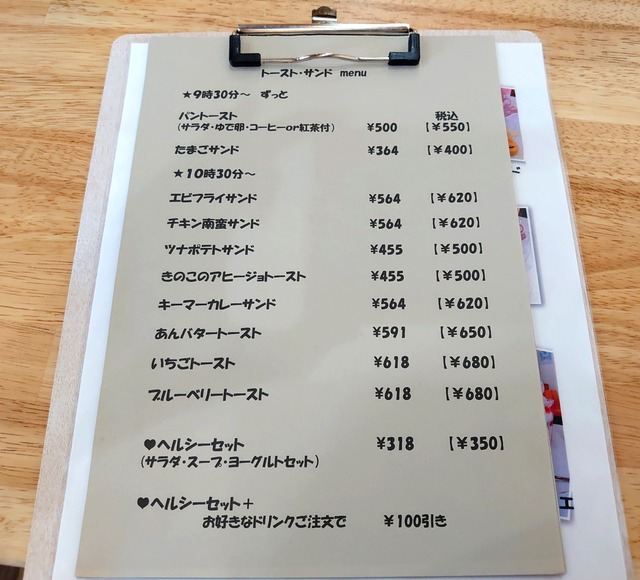 トースト・サンド menu
★9時30分～ ずっと
税込
パントースト
(サラダ・ゆで卵・コーヒーor紅茶付) ¥500 【¥550】
たまごサンド ¥364 【¥400】
★10時30分～
エビフライサンド ¥564 【¥620】
チキン南蛮サンド ¥564 【¥620】
ツナポテトサンド ¥455 【¥500】
きのこのアヒージョトースト ¥455 【¥500】
キーマーカレーサンド ¥564 【¥620】
あんバタートースト ¥591 【¥650】
いちごトースト ¥618 【¥680】
ブルーベリートースト ¥618 【¥680】
♥ヘルシーセット ¥318 【¥350】
(サラダ・スープ・ヨーグルトセット)
♥ヘルシーセット＋
お好きなドリンクご注文で ¥100引き